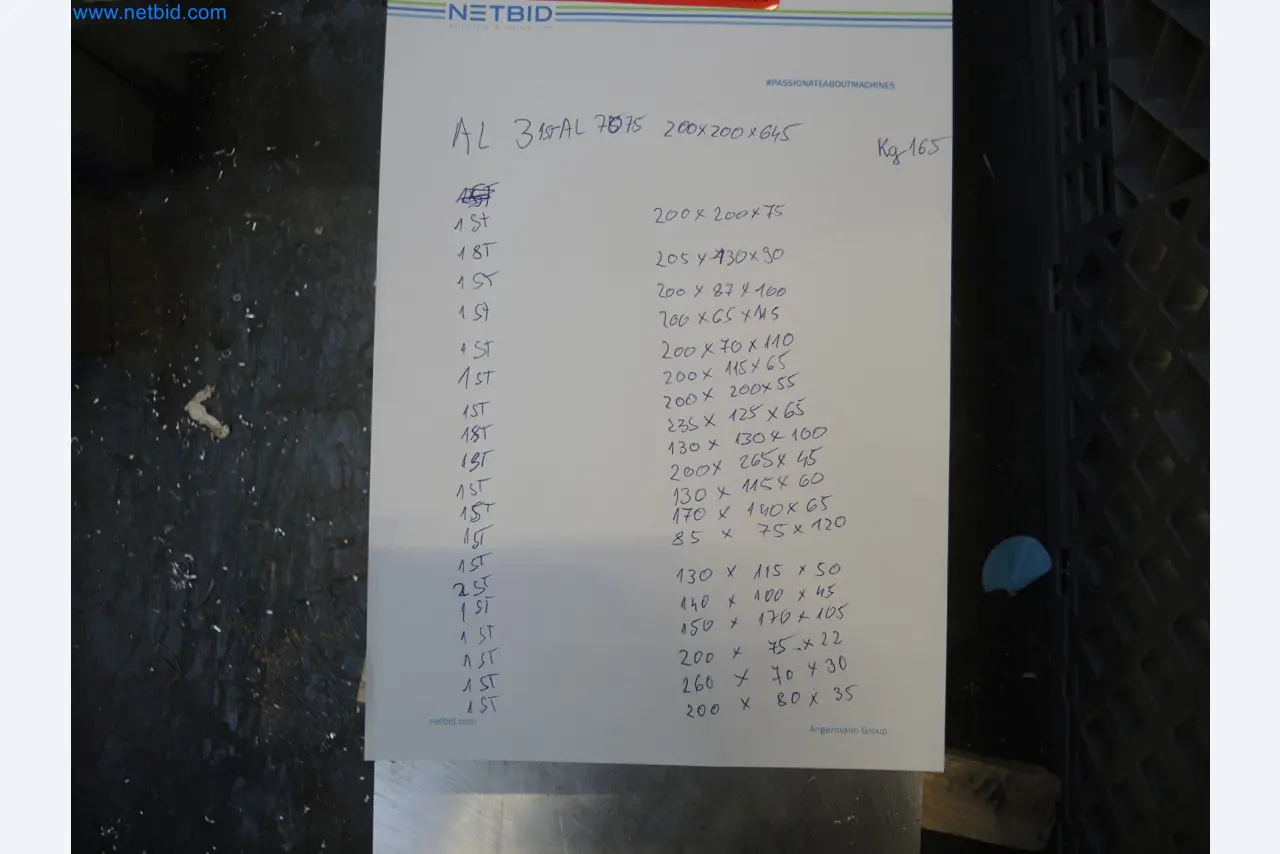 www.netbid.com
NETBID
#PASSIONATEABOUTMACHINES
AL 31 ST AL 7075 200x200x645
Kg 165
1 St 200x200x75
1 ST 205x130x90
1 ST 200x87x100
1 St 200x65x115
1 ST 200x70x110
1 ST 200x115x65
1 ST 200x200x55
1 ST 235x125x65
1 ST 130x130x100
1 ST 200x265x45
1 ST 130x115x60
1 ST 170x140x65
1 ST 85x75x120
2 ST 130x115x50
1 ST 140x100x45
1 ST 150x170x105
1 ST 200x75x22
1 ST 260x70x30
1 ST 200x80x35
netbid.com
Angermann Group